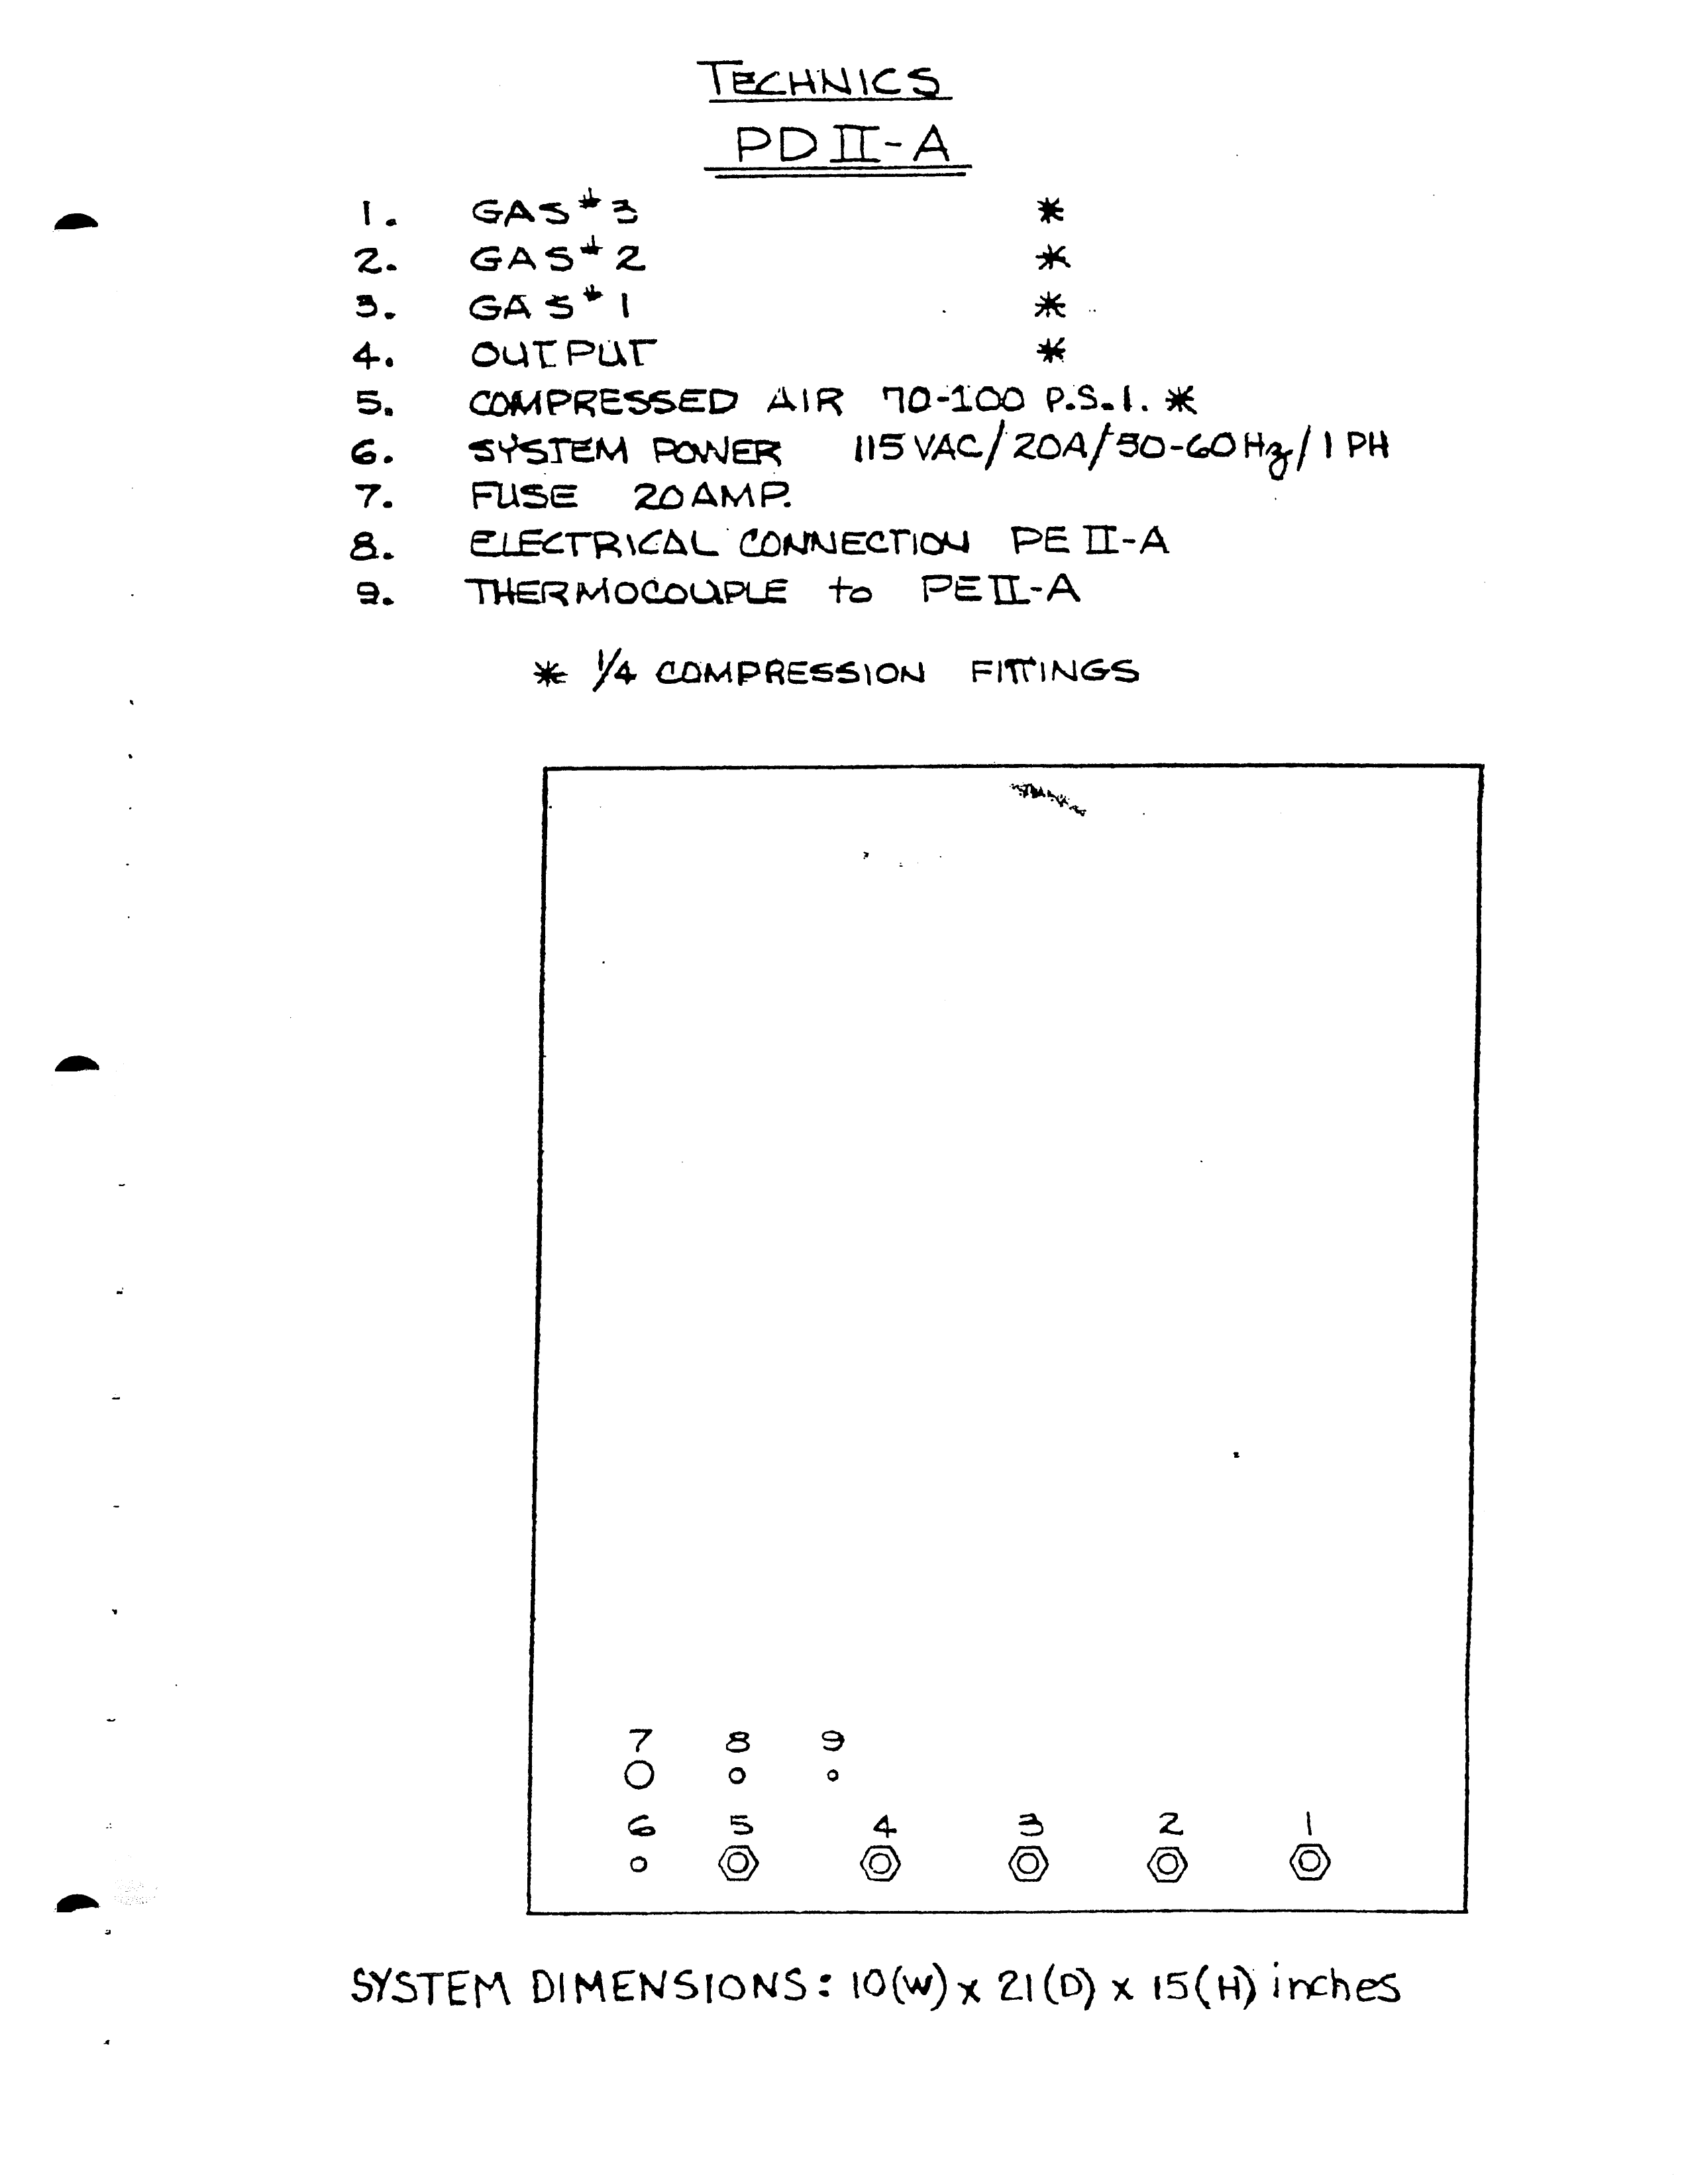 TECHNICS
PD II-A
1. GAS #3 *
2. GAS #2 *
3. GAS #1 *
4. OUTPUT *
5. COMPRESSED AIR 70-100 P.S.I. *
6. SYSTEM POWER 115 VAC/20A/50-60Hz/1 PH
7. FUSE 20 AMP.
8. ELECTRICAL CONNECTION PE II-A
9. THERMOCOUPLE to PE II-A
* 1/4 COMPRESSION FITTINGS
7 8 9
6 5 4 3 2 1
SYSTEM DIMENSIONS: 10(W) x 21(D) x 15(H) inches